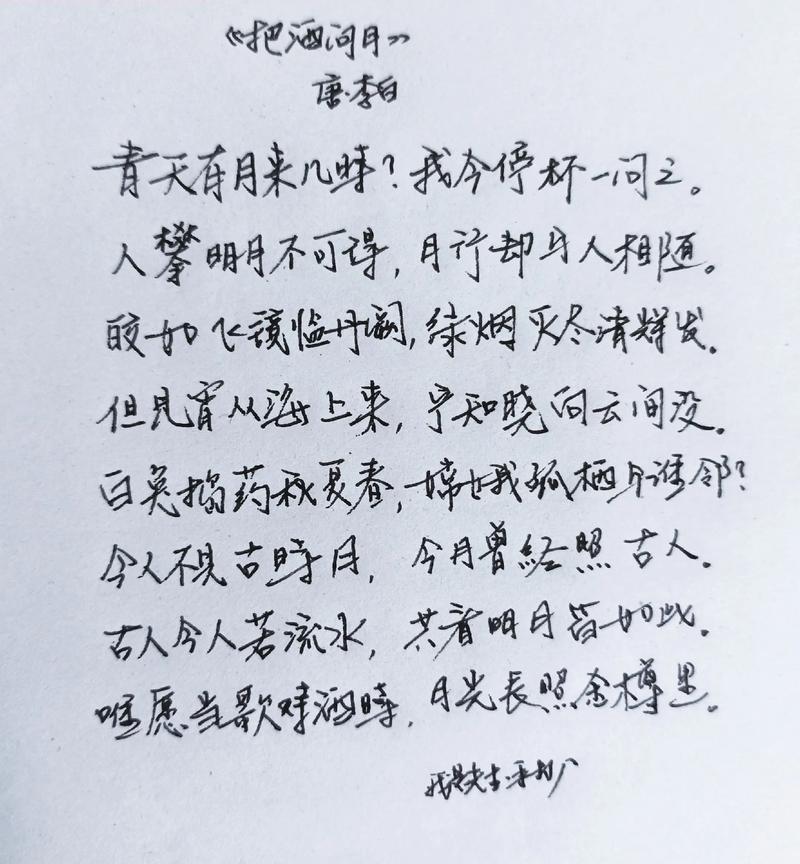 《把酒问月》
唐·李白
青天有月来几時？我今停杯一问之。
人攀明月不可得，月行却与人相随。
皎如飞镜临丹阙，绿烟灭尽清辉发。
但见宵从海上来，宁知晓向云间没。
白兔捣药秋复春，嫦娥孤栖与谁邻？
今人不見古時月，今月曾経照古人。
古人今人若流水，共看明月皆如此。
唯愿当歌对酒時，月光長照金樽里。